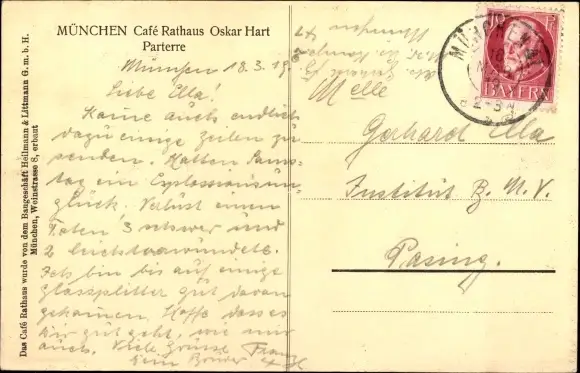 MÜNCHEN Café Rathaus Oskar Hart
Parterre
München 18.3.19.
Liebe Ella!
Komme auch endlich
dazu einige Zeilen zu
senden. Hatten Sams-
tag ein Explossionsun-
glück. Verlust einen
Toten, 3 schwer und
2 leichtverwundete.
Ich bin bis auf einige
Glassplitter gut davon
gekommen. Hoffe dass es
Dir gut geht, wie mir
auch. Viele Grüsse Franzl
Dein Bruder
Das Café Rathaus wurde von dem Baugeschäft Heilmann & Littmann G. m. b. H.
München, Weinstrasse 8, erbaut
München
Melle
Gerhard Ella
Institut B. M. V.
Pasing.
MÜNCHEN
BAYERN